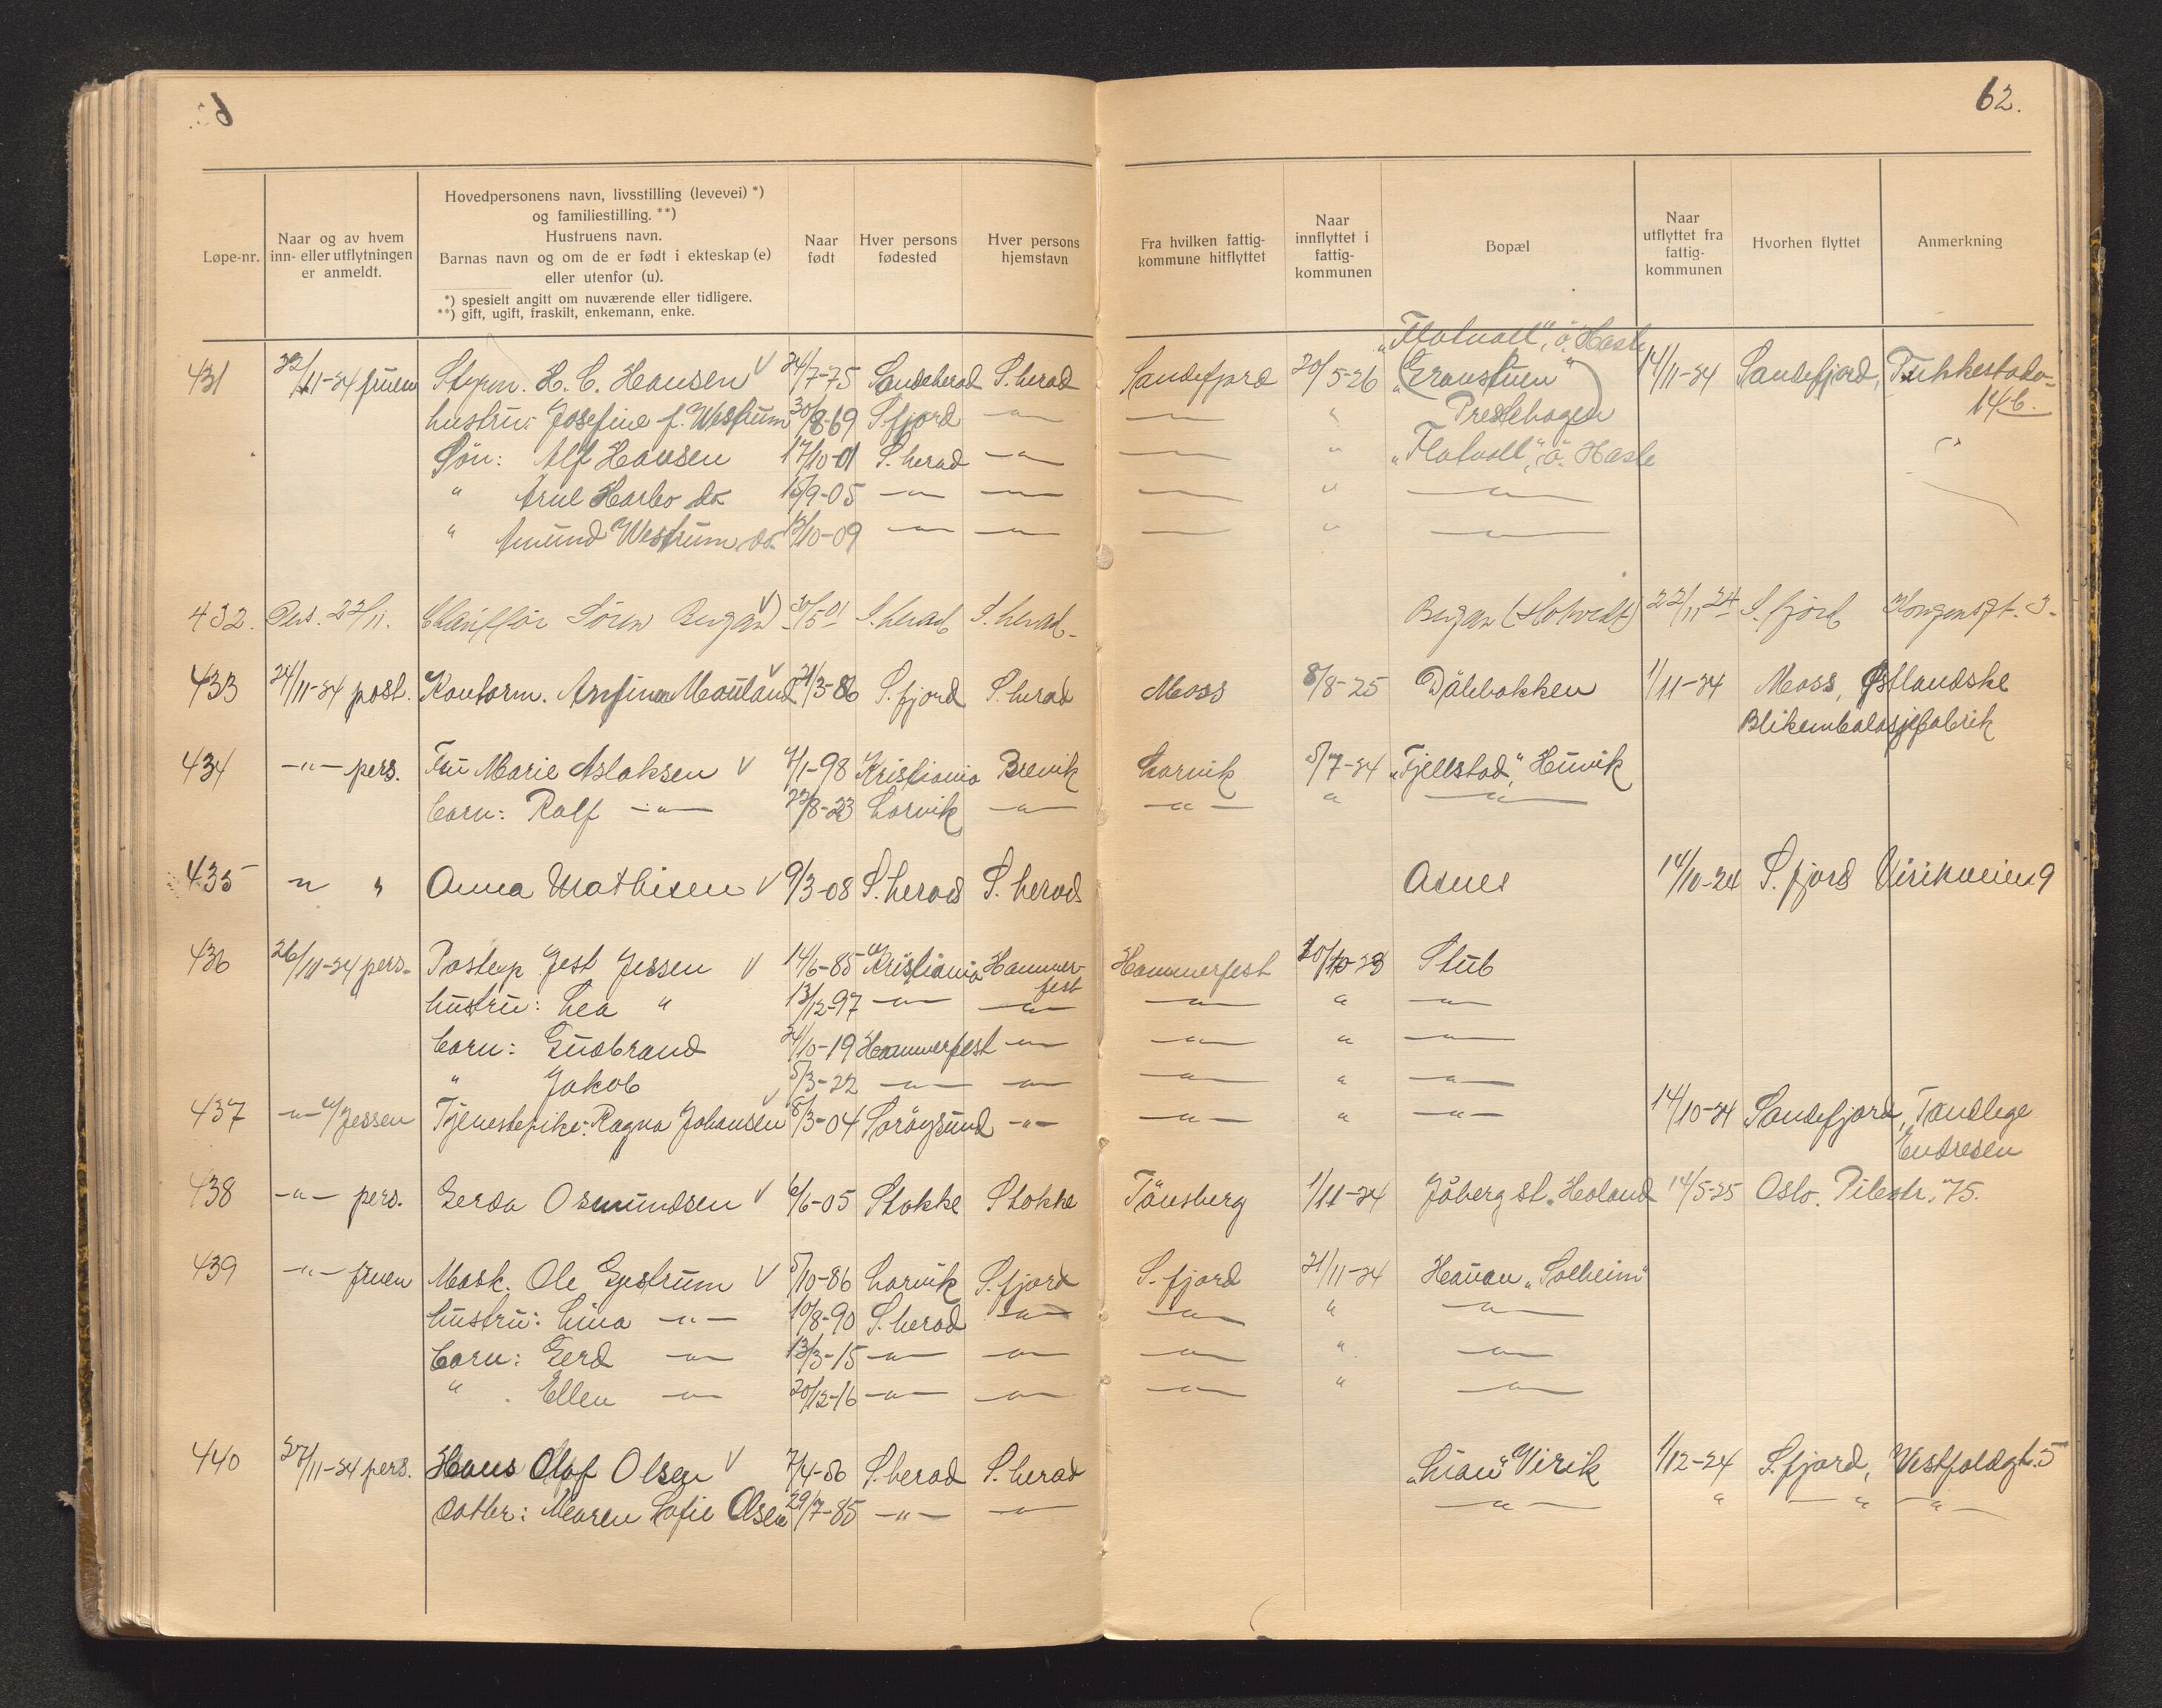 62.
Løpe-nr.
Naar og av hvem
inn- eller utflytningen
er anmeldt.
Hovedpersonens navn, livsstilling (levevei) *)
og familiestilling. **)
Hustruens navn.
Barnas navn og om de er født i ekteskap (e)
eller utenfor (u).
*) spesielt angitt om nuværende eller tidligere.
**) gift, ugift, fraskilt, enkemann, enke.
Naar
født
Hver persons
fødested
Hver persons
hjemstavn
Fra hvilken fattig-
kommune hitflyttet
Naar
innflyttet i
fattig-
kommunen
Bopæl
Naar
utflyttet fra
fattig-
kommunen
Hvorhen flyttet
Anmerkning
"Flatvoll", ö. Hasle
431 22/11-24 fruen Styrm. H. C. Hansen 24/7-75 Sandeherad S. herad Sandefjord 20/5-26 "Granstuen" 14/11-24 Sandefjord,
hustru: Josefine f. Westrum 30/8-69 S. fjord -"- -"- " Prestehagen 14 b.
Sön: Alf Hansen 17/10-01 S. herad -"- -"- " "Flatvoll", ö. Hasle
" Arne Harbo do. 15/9-05 -"- -"- -"- " -"-
" Amund Westrum do. 13/10-09 -"- -"- -"- " -"-
432. Pers. 22/11. Chauffør Sören Bergan 30/5-01 S. herad S. herad. Bergan 22/11 24 S. fjord Kongensgt. 3.
433 24/11-24 post. Kontorm. Arnfinn Mauland 21/3-86 S. fjord S. herad Moss 8/8-25 Dålebakken 1/11-24 Moss, Østlandske
Blikemballasjefabrik
434 -"- pers. Fru Marie Aslaksen 4/1-98 Kristiania Brevik Larvik 5/7-24 "Fjellstad", Huvik
barn: Ralf -"- 22/8-23 Larvik -"- -"- " -"-
435 " " Anna Mathisen 9/3-08 S. herad S. herad Asnes 14/10-24 S. fjord Virikveien 9
436 26/11-24 pers. Postexp. Jest Jessen 14/6-85 Kristiania Hammer-
fest Hammerfest 10/10-23 Stub
hustru: Lea " 13/12-97 -"- -"- -"- " -"-
barn: Gudbrand 24/10-19 Hammerfest -"- -"- " -"-
" Jakob 5/3-22 -"- -"- -"- " -"-
437 -"- v/Jessen Tjenestepike: Ragna Johansen 8/3-04 Sörøysund -"- -"- " -"- 14/10-24 Sandefjord, Tandlege
Endresen
438 -"- pers. Gerda Osmundsen 6/6-05 Stokke Stokke Tönsberg 1/11-24 Jåberg st. Haland 14/5-25 Oslo. Pilestr. 75.
439 -"- fruen Mask. Ole Gystrum 5/10-86 Larvik S. fjord S. fjord 21/11-24 Hauan "Solheim"
hustru: Lina -"- 10/8-90 S. herad -"- -"- " -"-
barn: Gerd -"- 13/3-15 -"- -"- -"- " -"-
" Ellen -"- 20/12-16 -"- -"- -"- " -"-
440 27/11-24 pers. Hans Olaf Olsen 7/4-56 S. herad S. herad "Lian" Virik 1/12-24 S. fjord, Vestfoldgt. 5
datter: Maren Sofie Olsen 29/7-85 -"- -"- -"- " -"- -"-